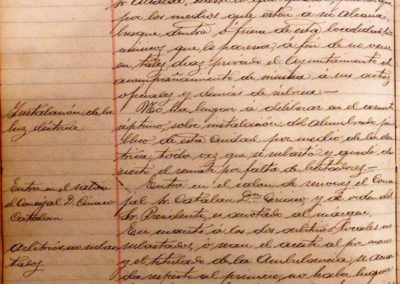 por los medios que esten a su alcance
busque dentro ó fuera de esta localidad
que le parezca, á fin de no verse
en tales dias privado el Ayuntamiento de
acompañamiento de música á sus actos
oficiales y demás de
Instalación de la
luz eléctrica
No ha lugar á deliberar en el asunto
séptimo, sobre instalación del alumbrado pú-
blico de esta Ciudad por medio de la elec-
trica, toda vez que se subastó y quedó de-
sierto el remate por falta de licitadores.—
Entra en el salón
el Concejal D. Cenaro
Catalan
Entra en el salon de sesiones el Conce-
jal Sr. Catalan Dn. Cenaro y de orden del
Sr. Presidente, es anotado al margen.
Arbitrios no subas-
tados
En cuanto á los dos arbitrios locales no
subastados, ó sean el aceite al por menor
y el titulado de la Ambulancia, se acuer-
da respecto al primero, no haber lugar